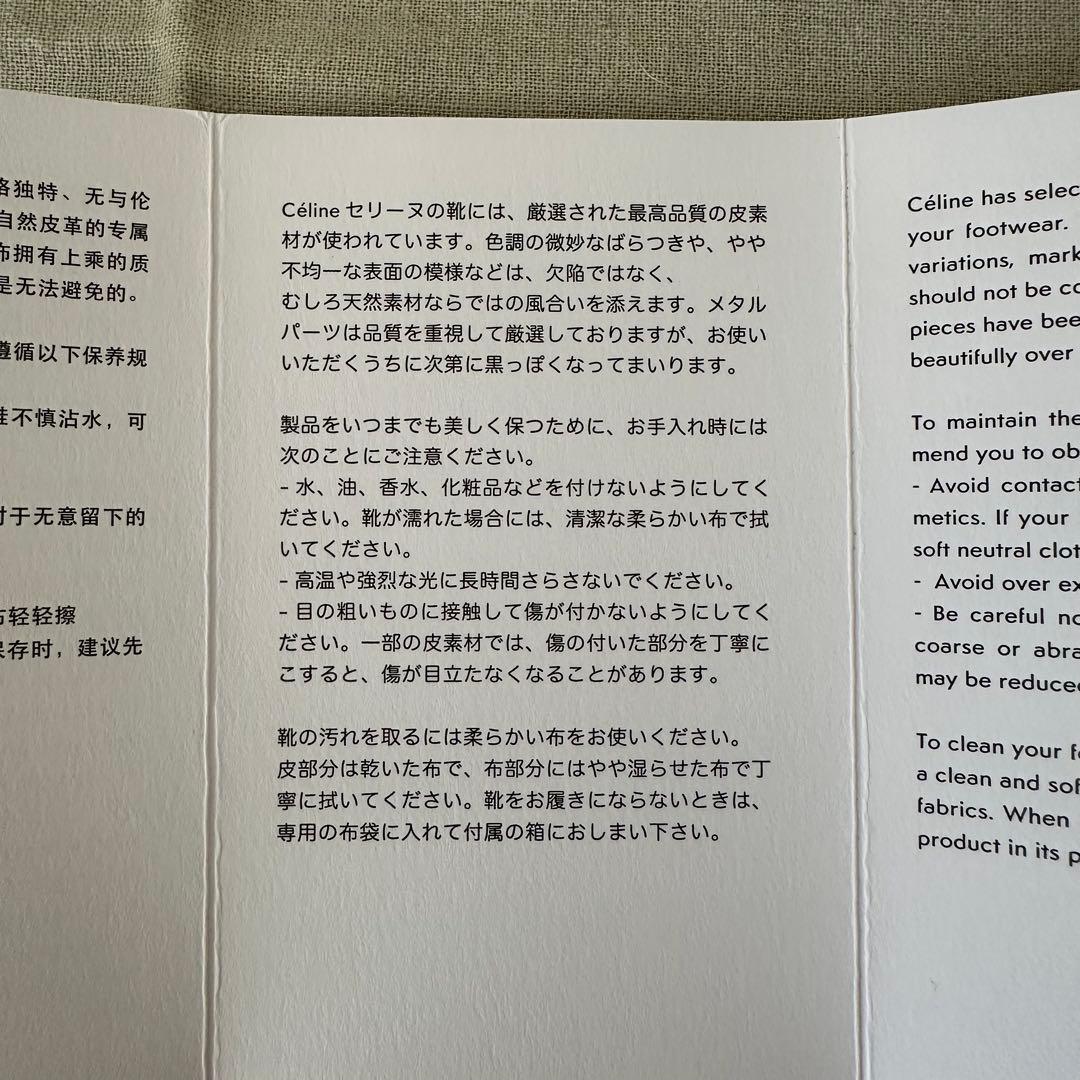 格独特、无与伦
自然皮革的专属
布拥有上乘的质
是无法避免的。
遵循以下保养规
不慎沾水，可
对于无意留下的
轻轻擦
保存时，建议先
Céline セリーヌの靴には、厳選された最高品質の皮素
材が使われています。色調の微妙なばらつきや、やや
不均一な表面の模様などは、欠陥ではなく、
むしろ天然素材ならではの風合いを添えます。メタル
パーツは品質を重視して厳選しておりますが、お使い
いただくうちに次第に黒っぽくなってまいります。
製品をいつまでも美しく保つために、お手入れ時には
次のことにご注意ください。
- 水、油、香水、化粧品などを付けないようにしてく
ださい。靴が濡れた場合には、清潔な柔らかい布で拭
いてください。
- 高温や強烈な光に長時間さらさないでください。
- 目の粗いものに接触して傷が付かないようにしてく
ださい。一部の皮素材では、傷の付いた部分を丁寧に
こすると、傷が目立たなくなることがあります。
靴の汚れを取るには柔らかい布をお使いください。
皮部分は乾いた布で、布部分にはやや湿らせた布で丁
寧に拭いてください。靴をお履きにならないときは、
専用の布袋に入れて付属の箱におしまい下さい。
Céline has selec
your footwear.
variations, mark
should not be co
pieces have bee
beautifully over
To maintain the
mend you to ob
- Avoid contact
metics. If your
soft neutral clot
- Avoid over ex
- Be careful no
coarse or abra
may be reduced
To clean your fo
a clean and sof
fabrics. When
product in its p